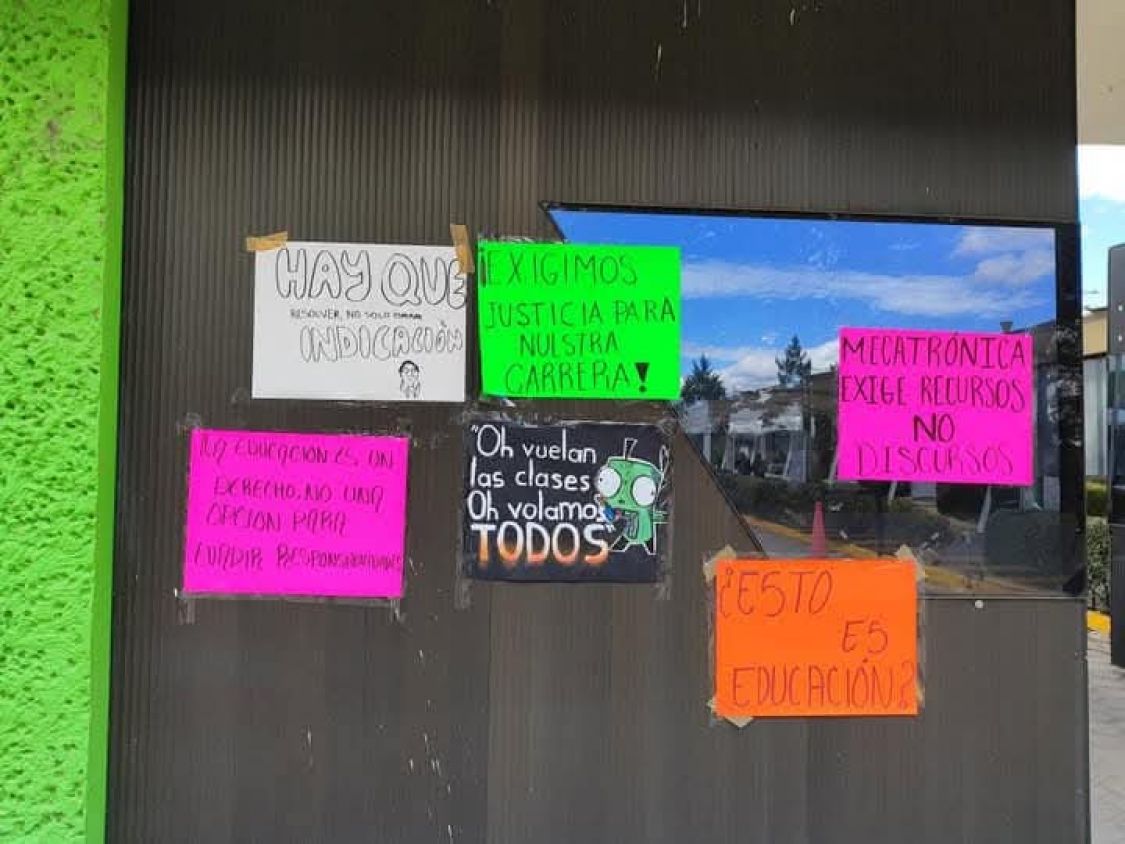 HAY QUE
RESOLVER, NO SOLO
INDICACIÓN
¡EXIGIMOS
JUSTICIA PARA
NUESTRA
CARRERA!
MECATRÓNICA
EXIGE RECURSOS
NO
DISCURSOS
LA EDUCACIÓN ES UN
DERECHO, NO UNA
OPCIÓN PARA
EVADIR RESPONSABILIDADES
"Oh vuelan
las clases
Oh volamos
TODOS"
¿ESTO
ES
EDUCACIÓN?